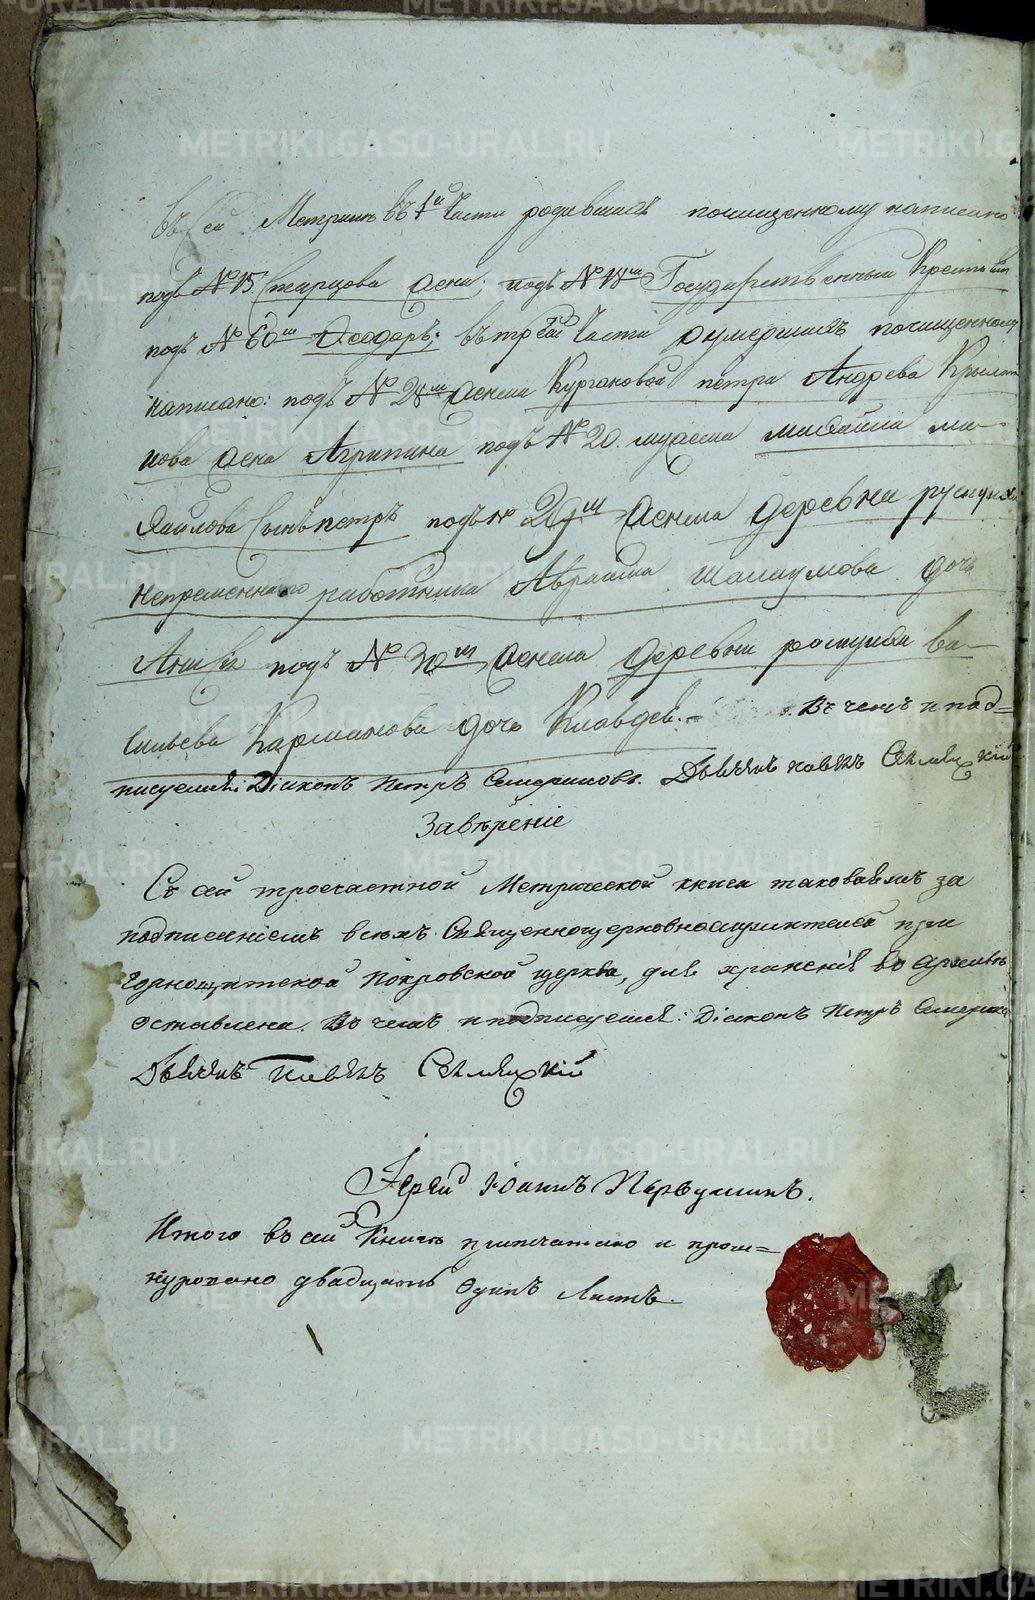 въ сей Метрике въ 1й части родившихся почищенному написано
подъ № 15 Старцова жена; подъ № 18м Государственный Крестьян
подъ № 60м Феодоръ; въ третей части умершихъ почищенному
написано: подъ № 28м женска Кургановой петра Андреева Крылат
кова жена Агрипина подъ № 20. мужеска михаила ми-
хайлова сынъ петръ подъ № 29м женска деревни
непременнаго работника Авраама шалаумова дочь
подъ № 30м женска деревни ва-
сильева Карманова дочь Клавдея. Въ чемъ и под=
писуемся: Діаконъ Петръ Семериковъ. Дьячекъ павелъ
Завѣреніе
Съ сей троечастной Метрической книги таковаяжъ за
подписаніемъ всѣхъ Священноцерковнослужителей при
Горнощитской Покровской церкви, для храненія во Архивѣ
оставлена. Въ чемъ и подписуемся: Діаконъ Петръ Семерико
Дьячекъ павелъ
Іерей Іоаннъ Первушинъ.
Итого въ сей Книге припечатано и прош=
нуровано двадцать одинъ Листъ.
METRIKI.GASO-URAL.RU